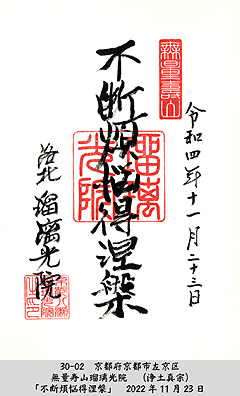 無量壽山
令和四年十一月二十三日
不断煩悩得涅槃
瑠璃光院
洛北 瑠璃光院
30-02 京都府京都市左京区
無量寿山瑠璃光院 (浄土真宗)
「不断煩悩得涅槃」 2022年11月23日